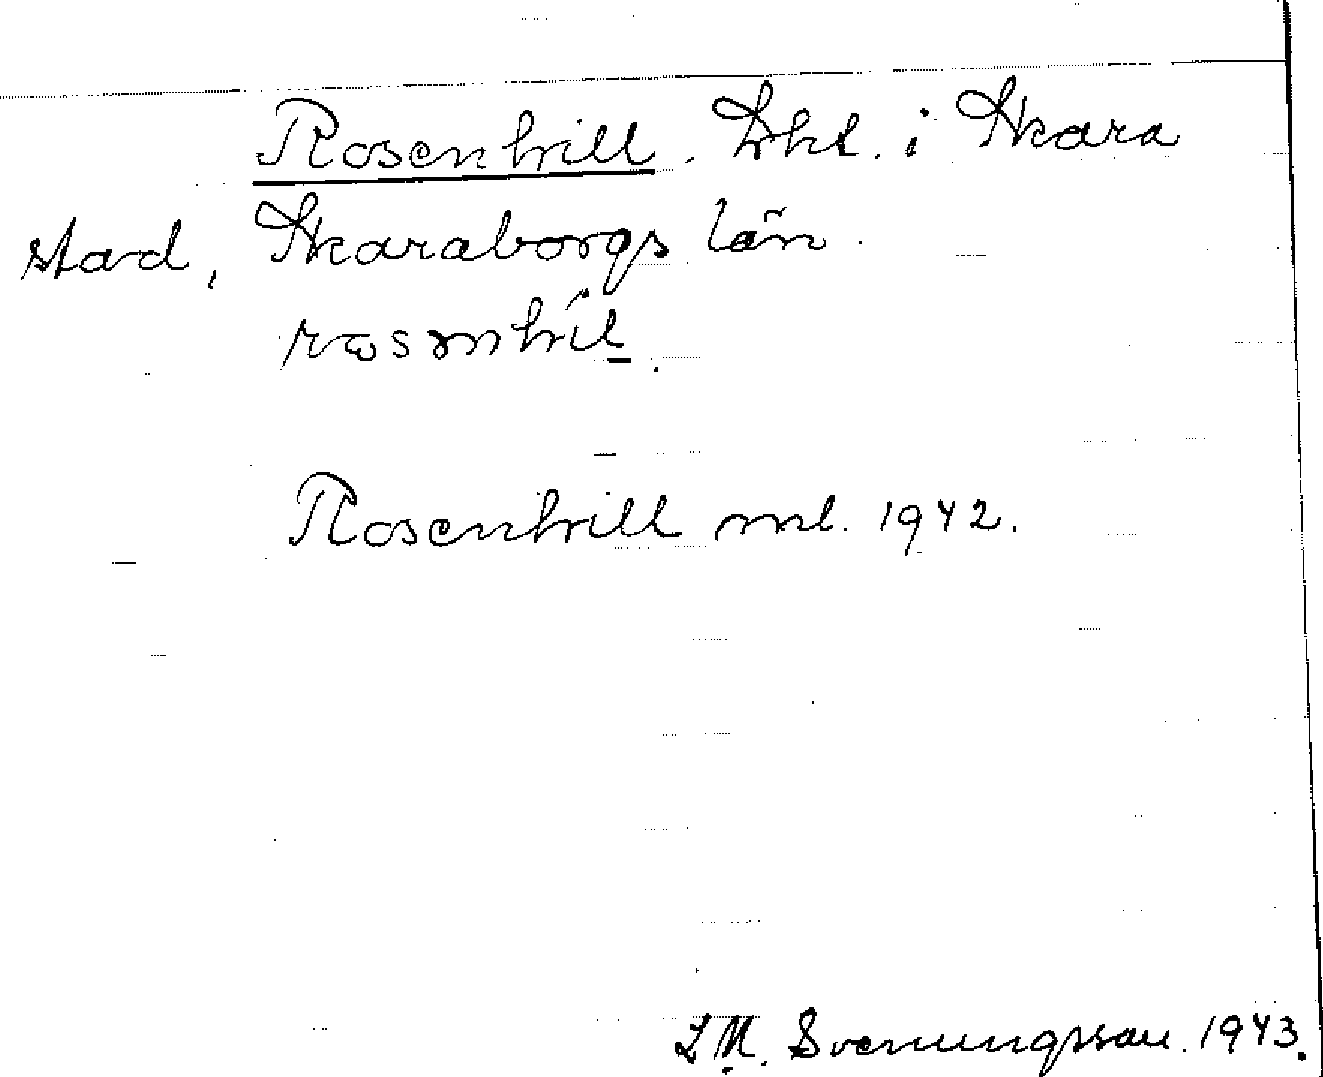 Rosenhill. Lht. i Skara
stad, Skaraborgs län.
Rosenhill ml. 1942.
L M. Svenungsson. 1943.